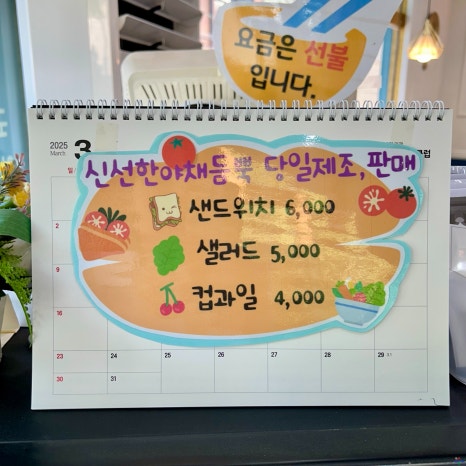 요금은 선불
입니다.
2025
March
3
신선한야채듬뿍 당일제조, 판매
샌드위치 6,000
샐러드 5,000
컵과일 4,000
2
9
16
23 24 25 26 27 28 29
30 31